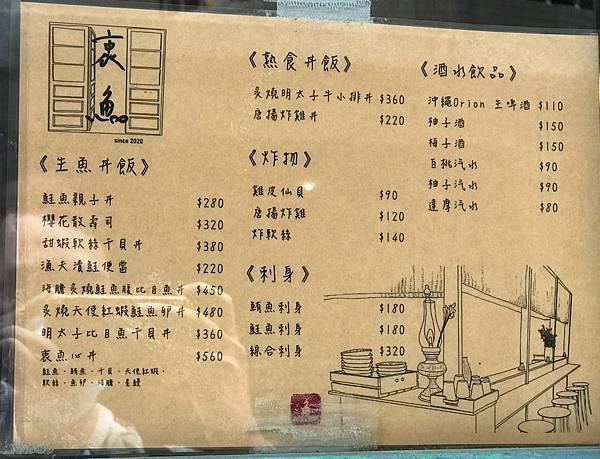 衷
魚
since 2020
《生魚丼飯》
鮭魚親子丼 $280
櫻花散壽司 $320
甜蝦軟絲干貝丼 $380
漁夫漬鮭便當 $220
海膽炙燒鮭魚腹比目魚丼 $450
炙燒天使紅蝦鮭魚卵丼 $480
明太子比目魚干貝丼 $360
衷魚心丼 $560
鮭魚、鮪魚、干貝、天使紅蝦、
軟絲、魚卵、海膽、星鰻
《熟食丼飯》
炙燒明太子牛小排丼 $360
唐揚炸雞丼 $220
《炸物》
雞皮仙貝 $90
唐揚炸雞 $120
炸軟絲 $140
《刺身》
鮪魚刺身 $180
鮭魚刺身 $180
綜合刺身 $320
《酒水飲品》
沖繩Orion 生啤酒 $110
柚子酒 $150
梅子酒 $150
白桃汽水 $90
柚子汽水 $90
達摩汽水 $80